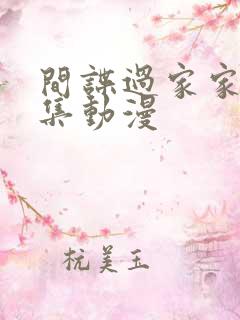 間諜過家家
集動漫
杭美玉